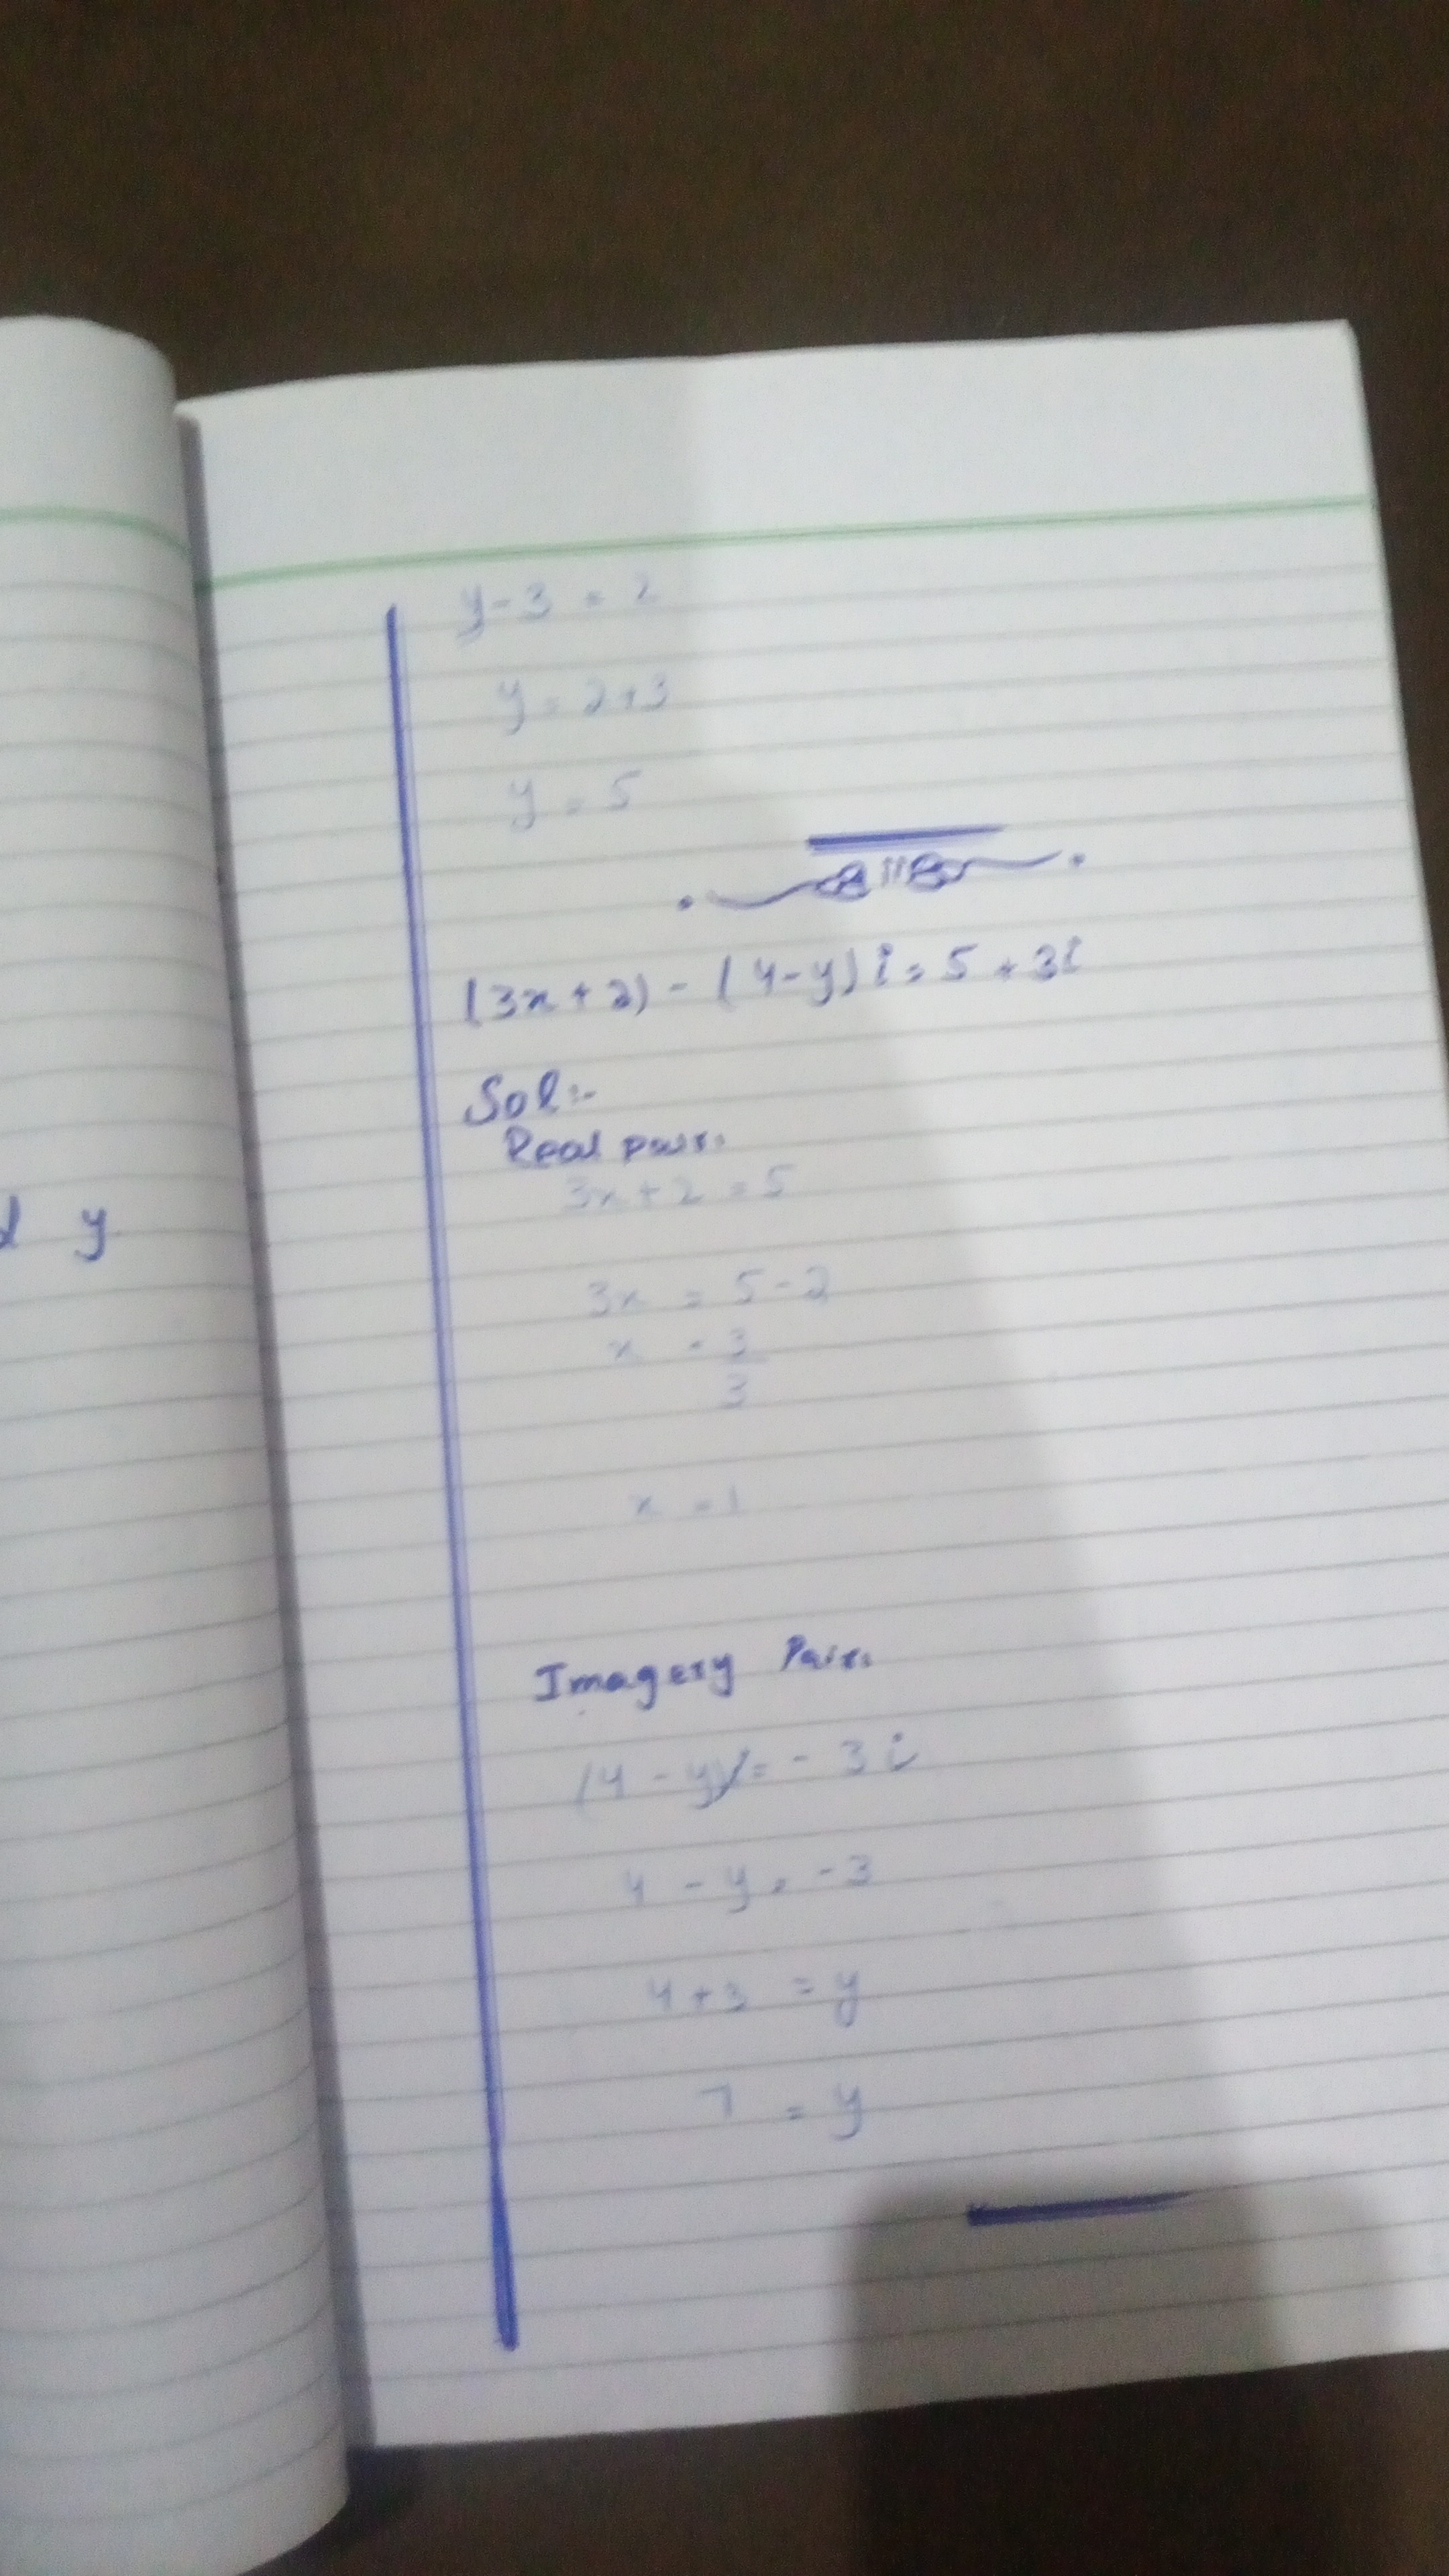 y
y - 3 = 2
y = 2+3
y = 5
(3x + 2) - (4-y) i = 5 + 3i
Sol:-
Real pair:
3x + 2 = 5
3x = 5 - 2
x = 3
3
x = 1
Imagery Pair:
(4 - y)i = - 3i
4 - y = -3
4 + 3 = y
7 = y